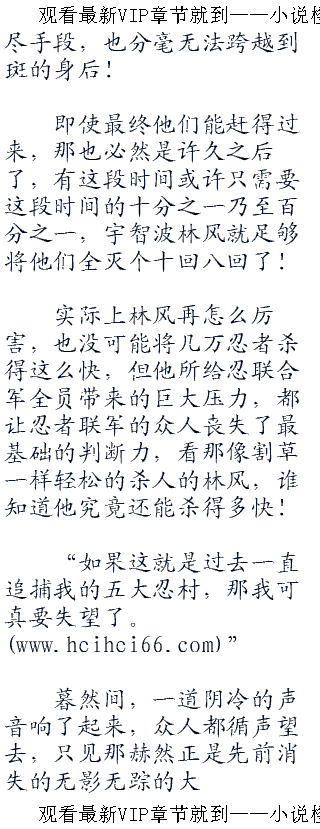 观看最新VIP章节就到——小说
尽手段，也分毫无法跨越到
斑的身后！
即使最终他们能赶得过
来，那也必然是许久之后
了，有这段时间或许只需要
这段时间的十分之一乃至百
分之一，宇智波林风就足够
将他们全灭个十回八回了！
实际上林风再怎么厉
害，也没可能将几万忍者杀
得这么快，但他所给忍联合
军全员带来的巨大压力，都
让忍者联军的众人丧失了最
基础的判断力，看那像割草
一样轻松的杀人的林风，谁
知道他究竟还能杀得多快！
“如果这就是过去一直
追捕我的五大忍村，那我可
真要失望了。
(www.hcihci66.com)”
暮然间，一道阴冷的声
音响了起来，众人都循声望
去，只见那赫然正是先前消
失的无影无踪的大
观看最新VIP章节就到——小说